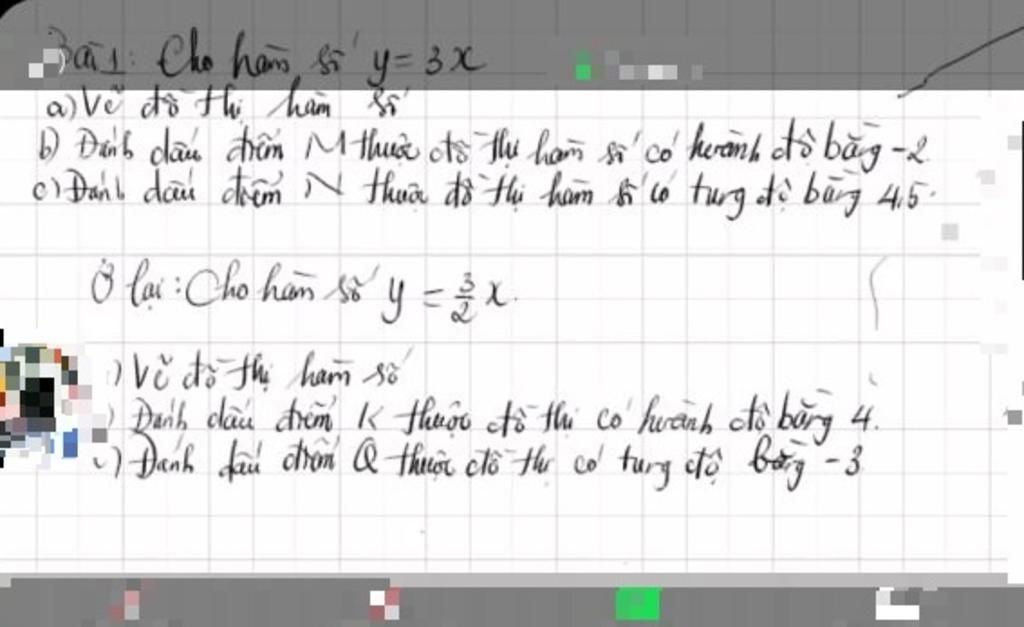 Bài 1: Cho hàm số y = 3x
a) Vẽ đồ thị hàm số
b) Đánh dấu điểm M thuộc đồ thị hàm số có hoành độ bằng -2
c) Đánh dấu điểm N thuộc đồ thị hàm số có tung độ bằng 4,5.
Ở lại: Cho hàm số y = 3/2 x.
) Vẽ đồ thị hàm số
) Đánh dấu điểm K thuộc đồ thị có hoành độ bằng 4.
c) Đánh dấu điểm Q thuộc đồ thị có tung độ bằng -3